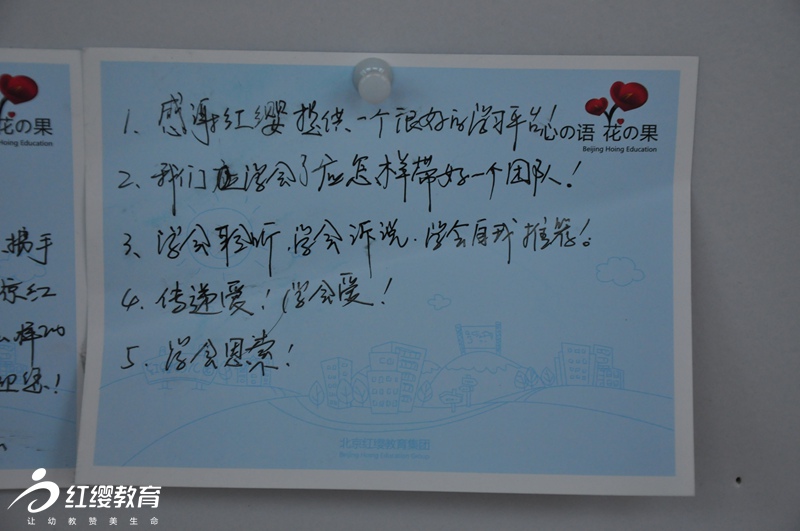 花の果
Hoing Education
携手
红
1、感谢红缨提供一个很好的学习平台!
心の语 花の果
Beijing Hoing Education
2、我们学会了应怎样带好一个团队!
3、学会聆听、学会诉说、学会自我推荐!
4、传递爱!学会爱!
5、学会思索!
北京红缨教育集团
Beijing Hoing Education Group
红缨教育
让幼教赞美生命